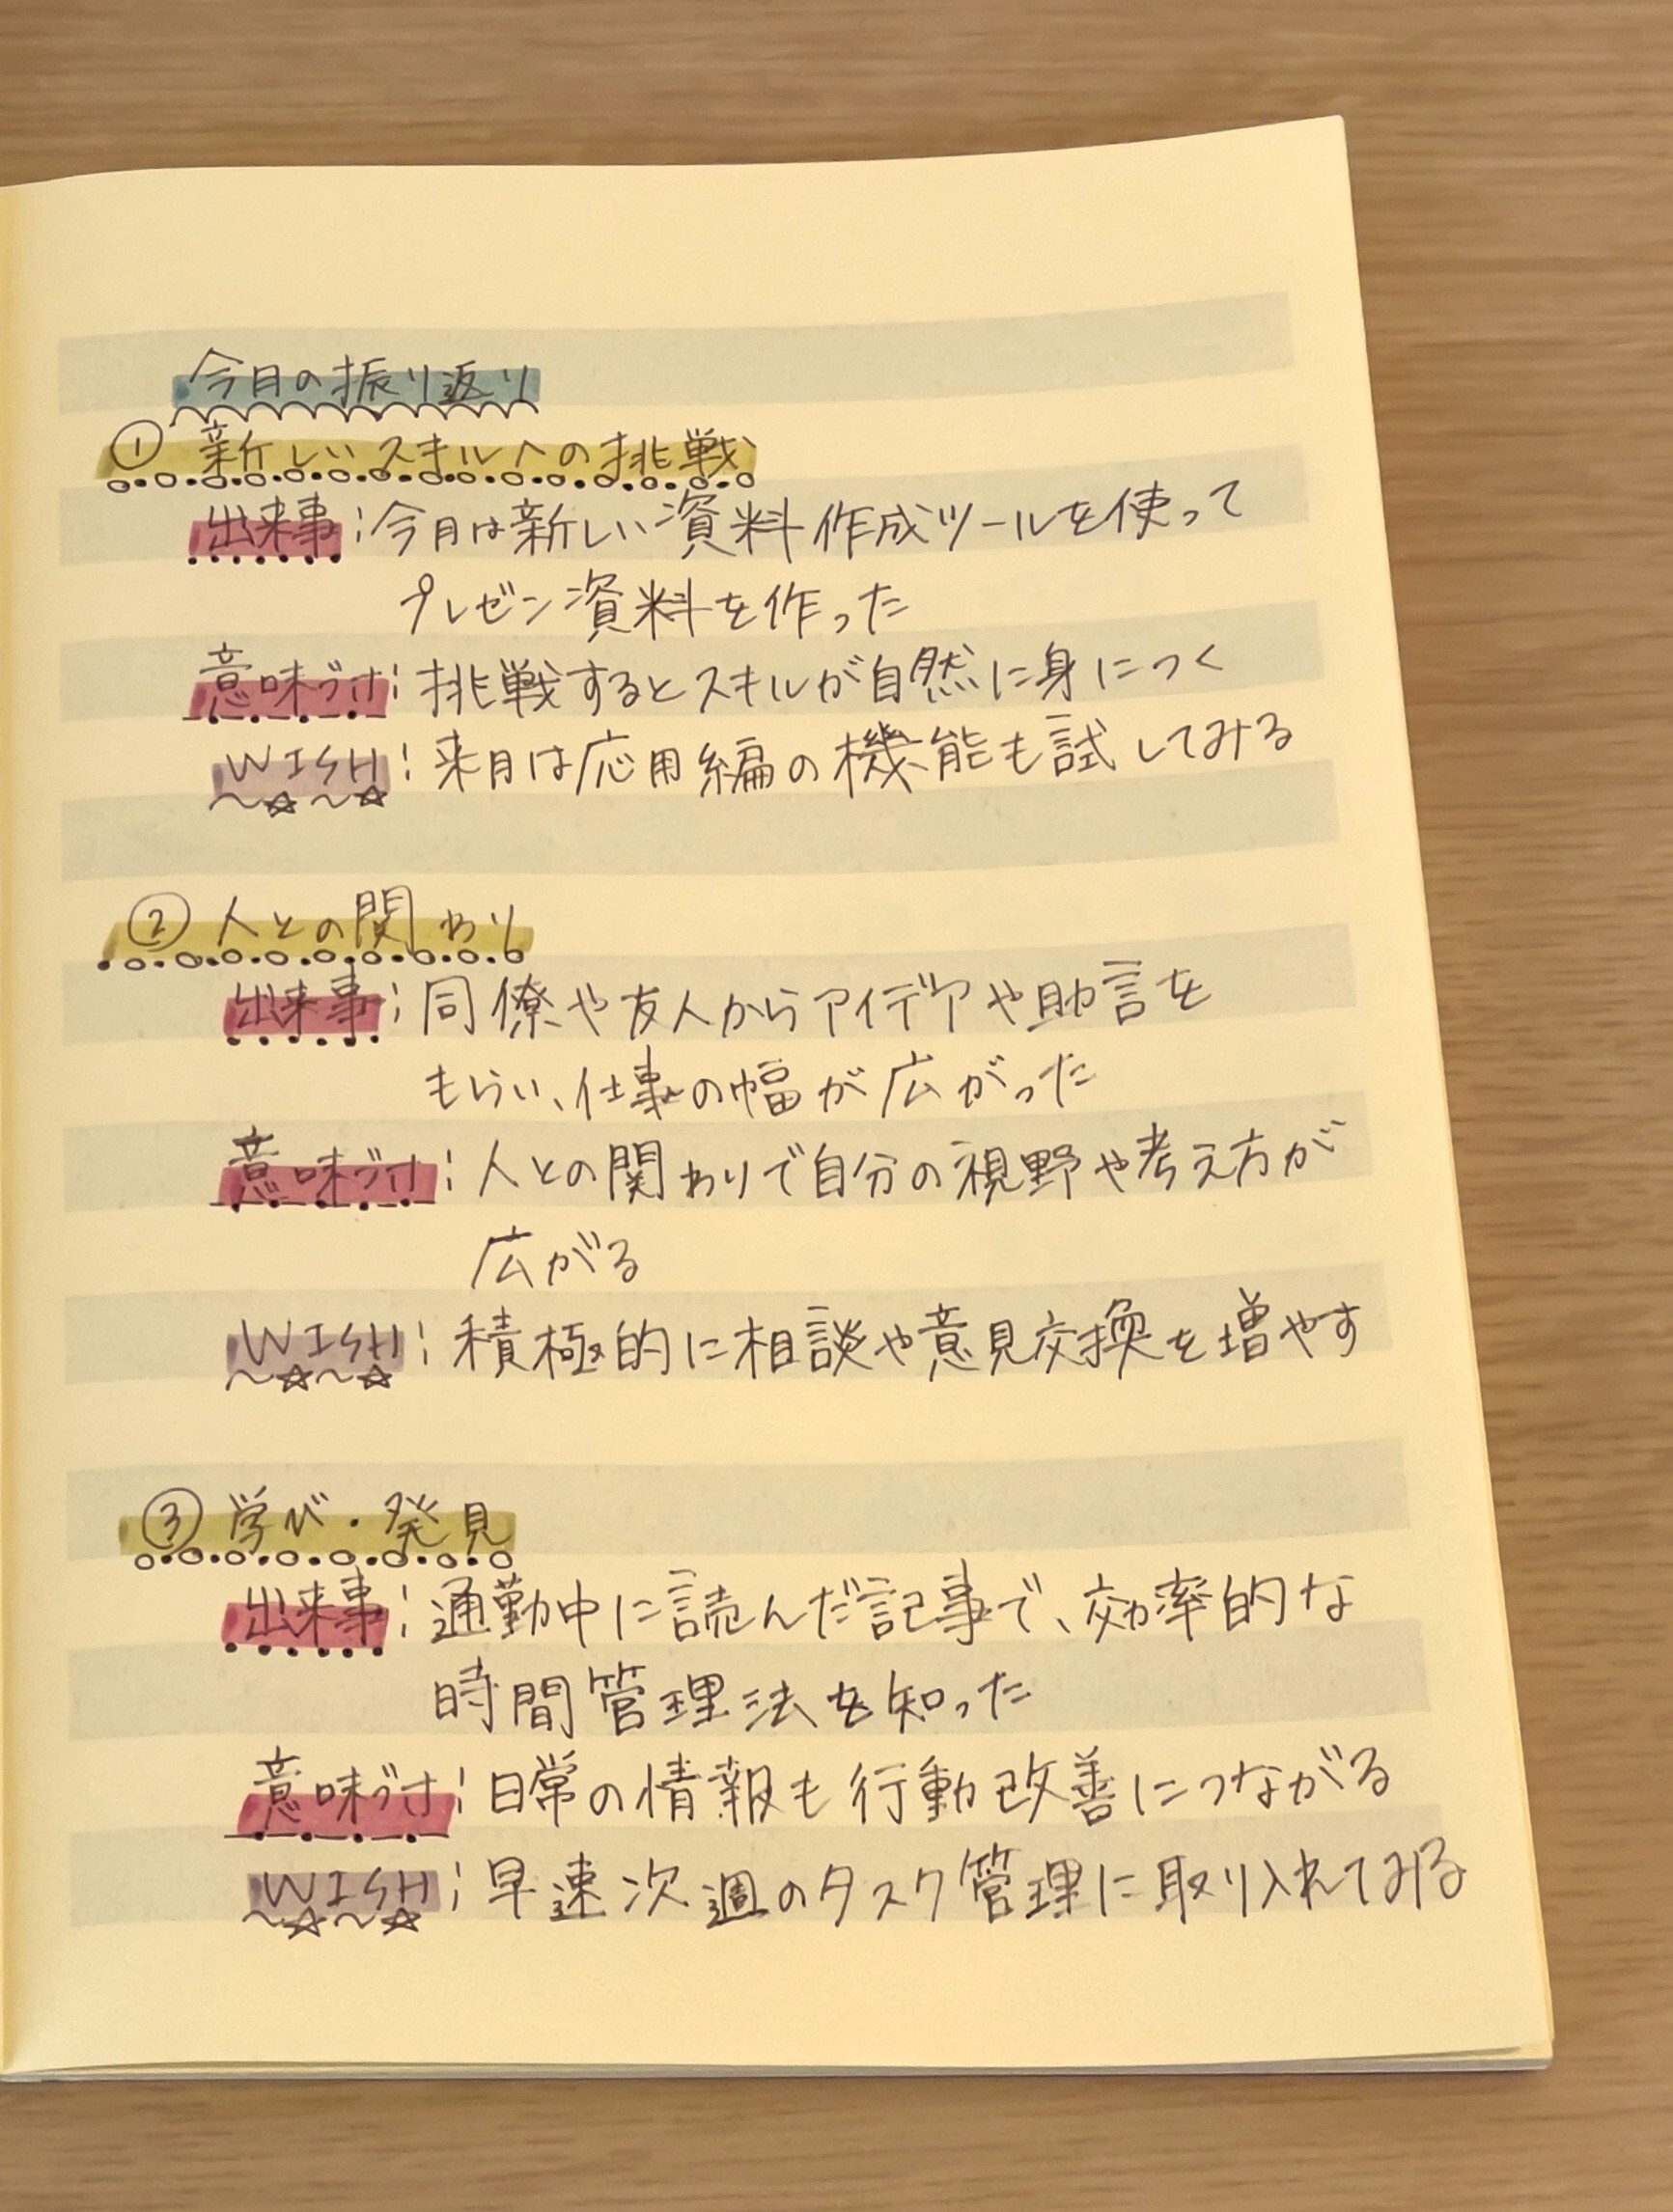 今日の振り返り
① 新しいスキルへの挑戦
出来事：今月は新しい資料作成ツールを使って
プレゼン資料を作った
意味づけ：挑戦するとスキルが自然に身につく
WISH：来月は応用編の機能も試してみる
② 人との関わり
出来事：同僚や友人からアイデアや助言を
もらい、仕事の幅が広がった
意味づけ：人との関わりで自分の視野や考え方が
広がる
WISH：積極的に相談や意見交換を増やす
③ 学び・発見
出来事：通勤中に読んだ記事で、効率的な
時間管理法を知った
意味づけ：日常の情報も行動改善につながる
WISH：早速次週のタスク管理に取り入れてみる